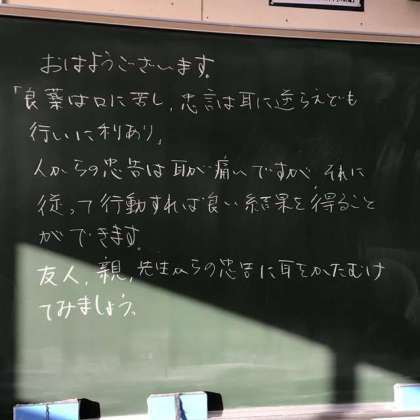 おはようございます。
「良薬は口に苦し、忠言は耳に逆らえども
行いに利あり」
人からの忠告は耳が痛いですが、それに
従って行動すれば良い結果を得ること
ができます。
友人、親、先生からの忠告に耳をかたむけ
てみましょう。